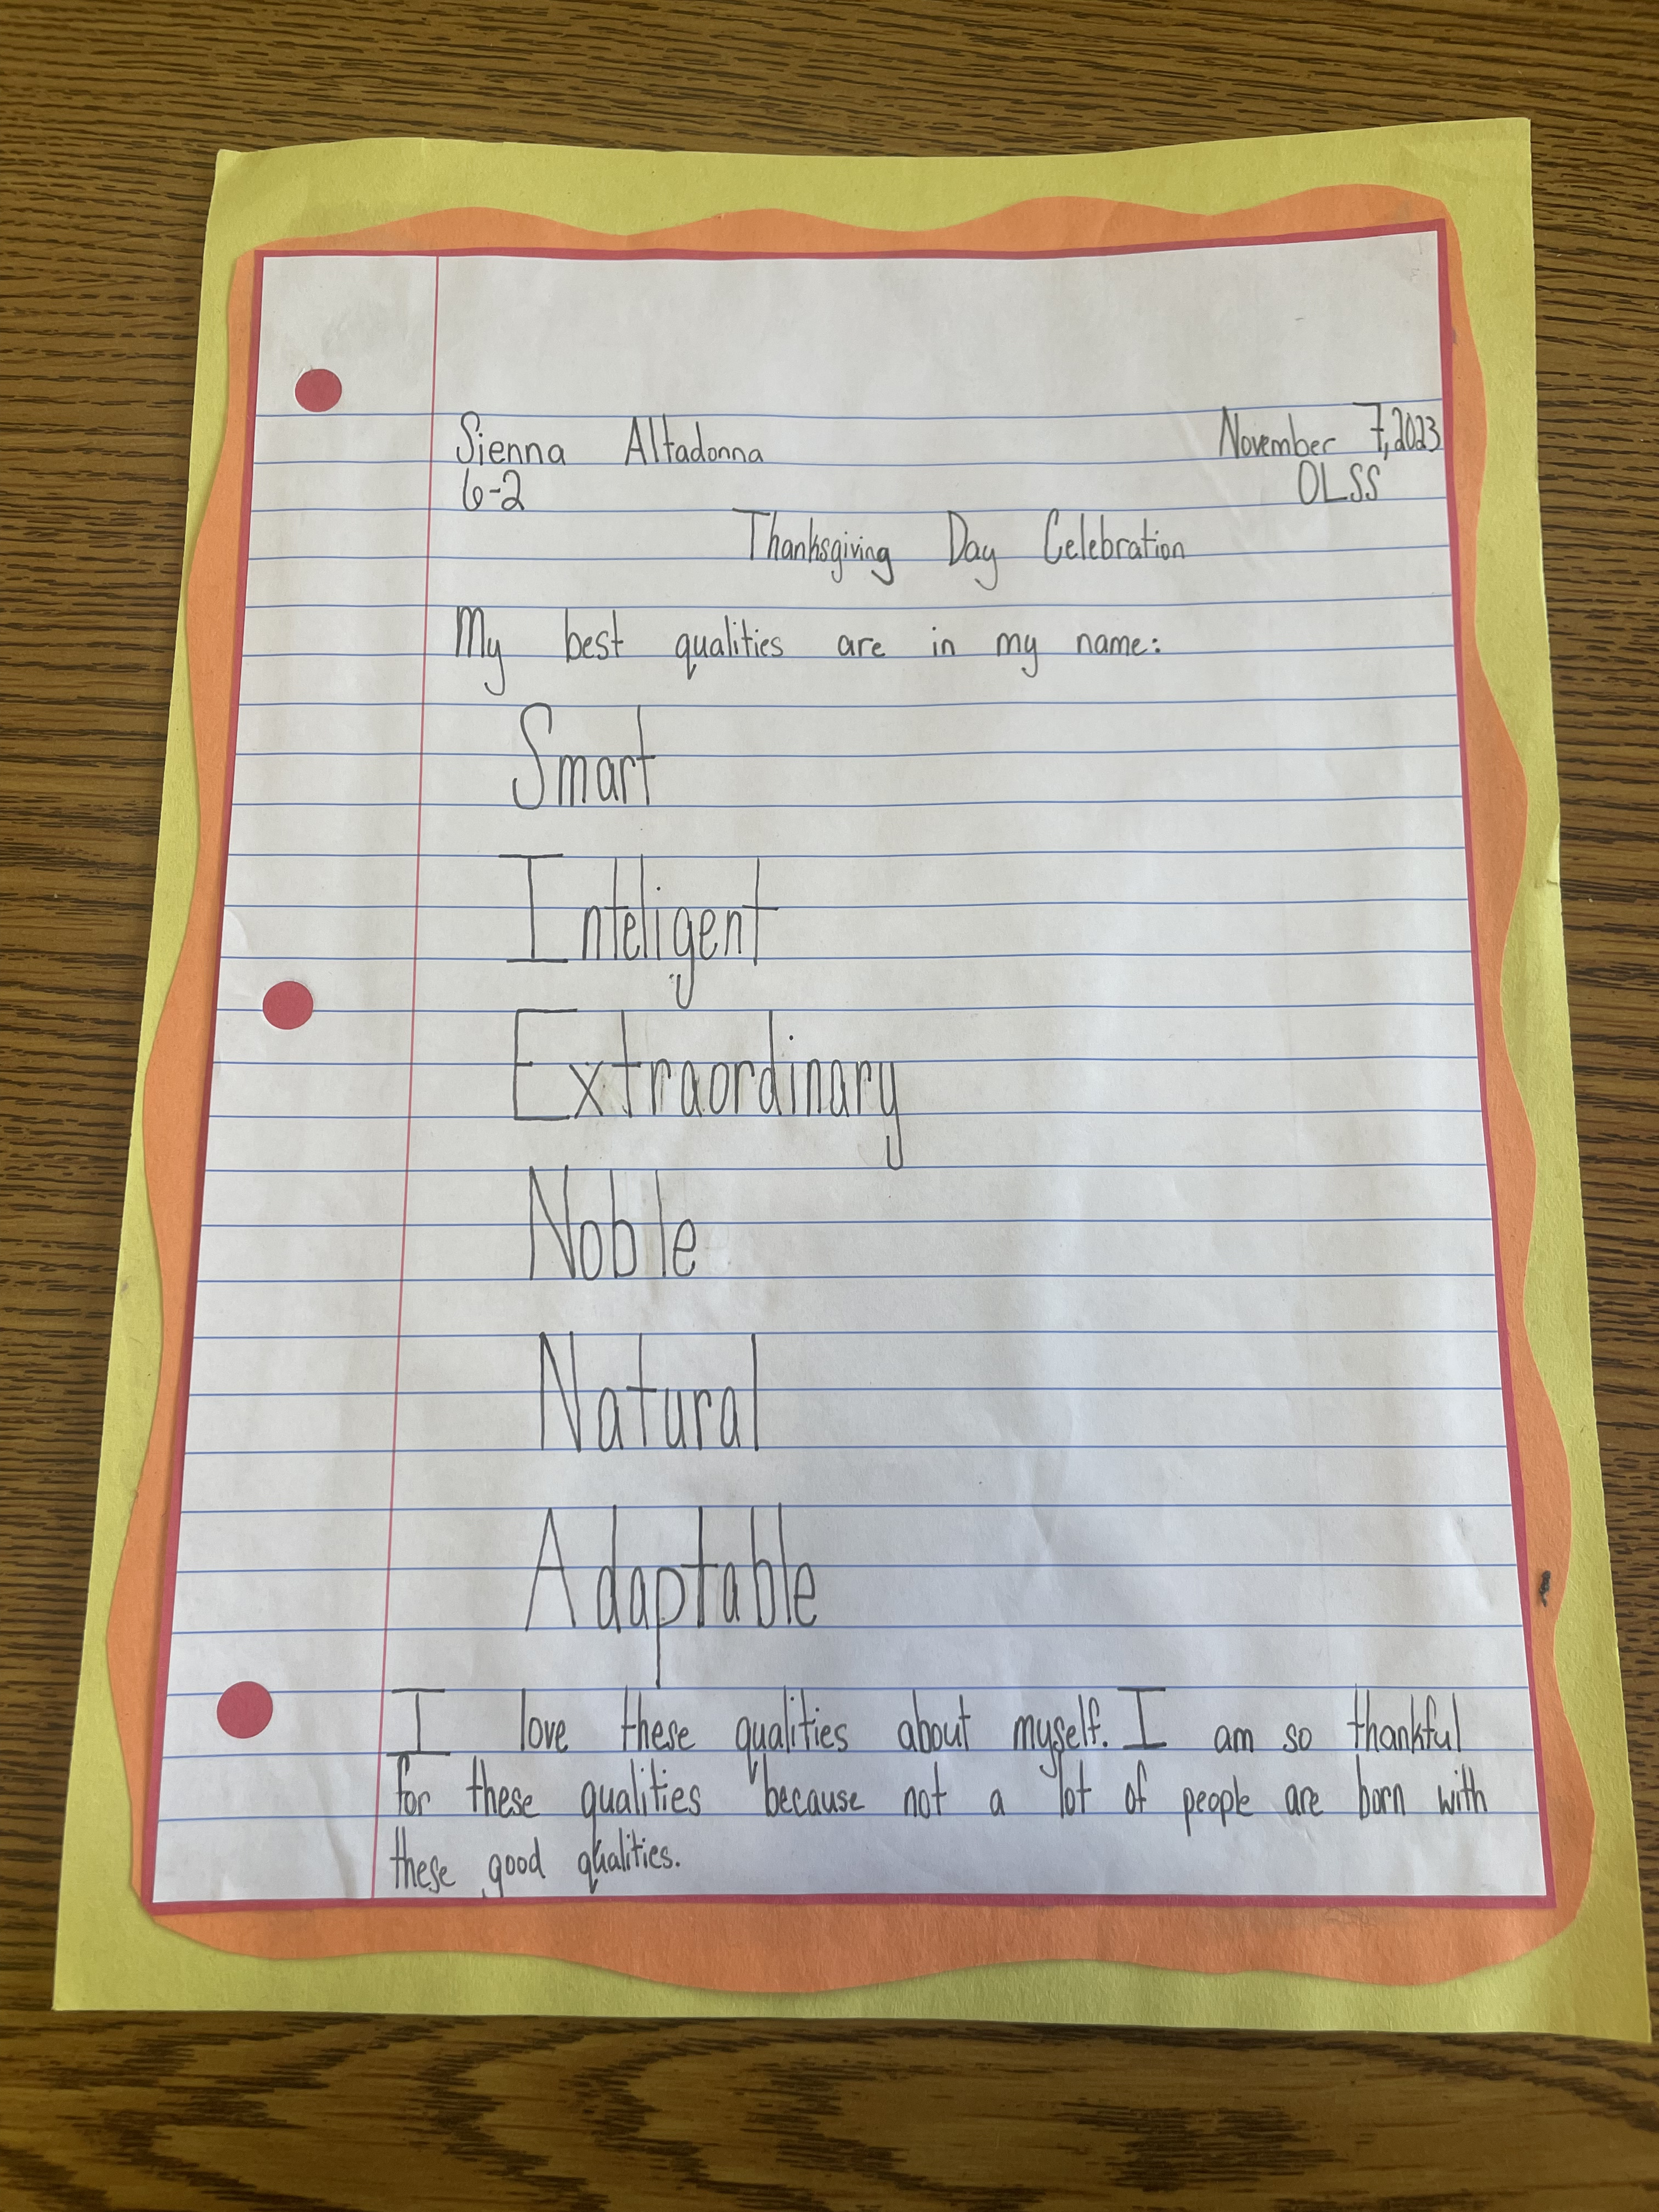 Sienna Altadonna November 7, 2023
6-2 OLSS
Thanksgiving Day Celebration
My best qualities are in my name:
Smart
Inteligent
Extraordinary
Noble
Natural
Adaptable
I love these qualities about myself. I am so thankful
for these qualities because not a lot of people are born with
these good qualities.